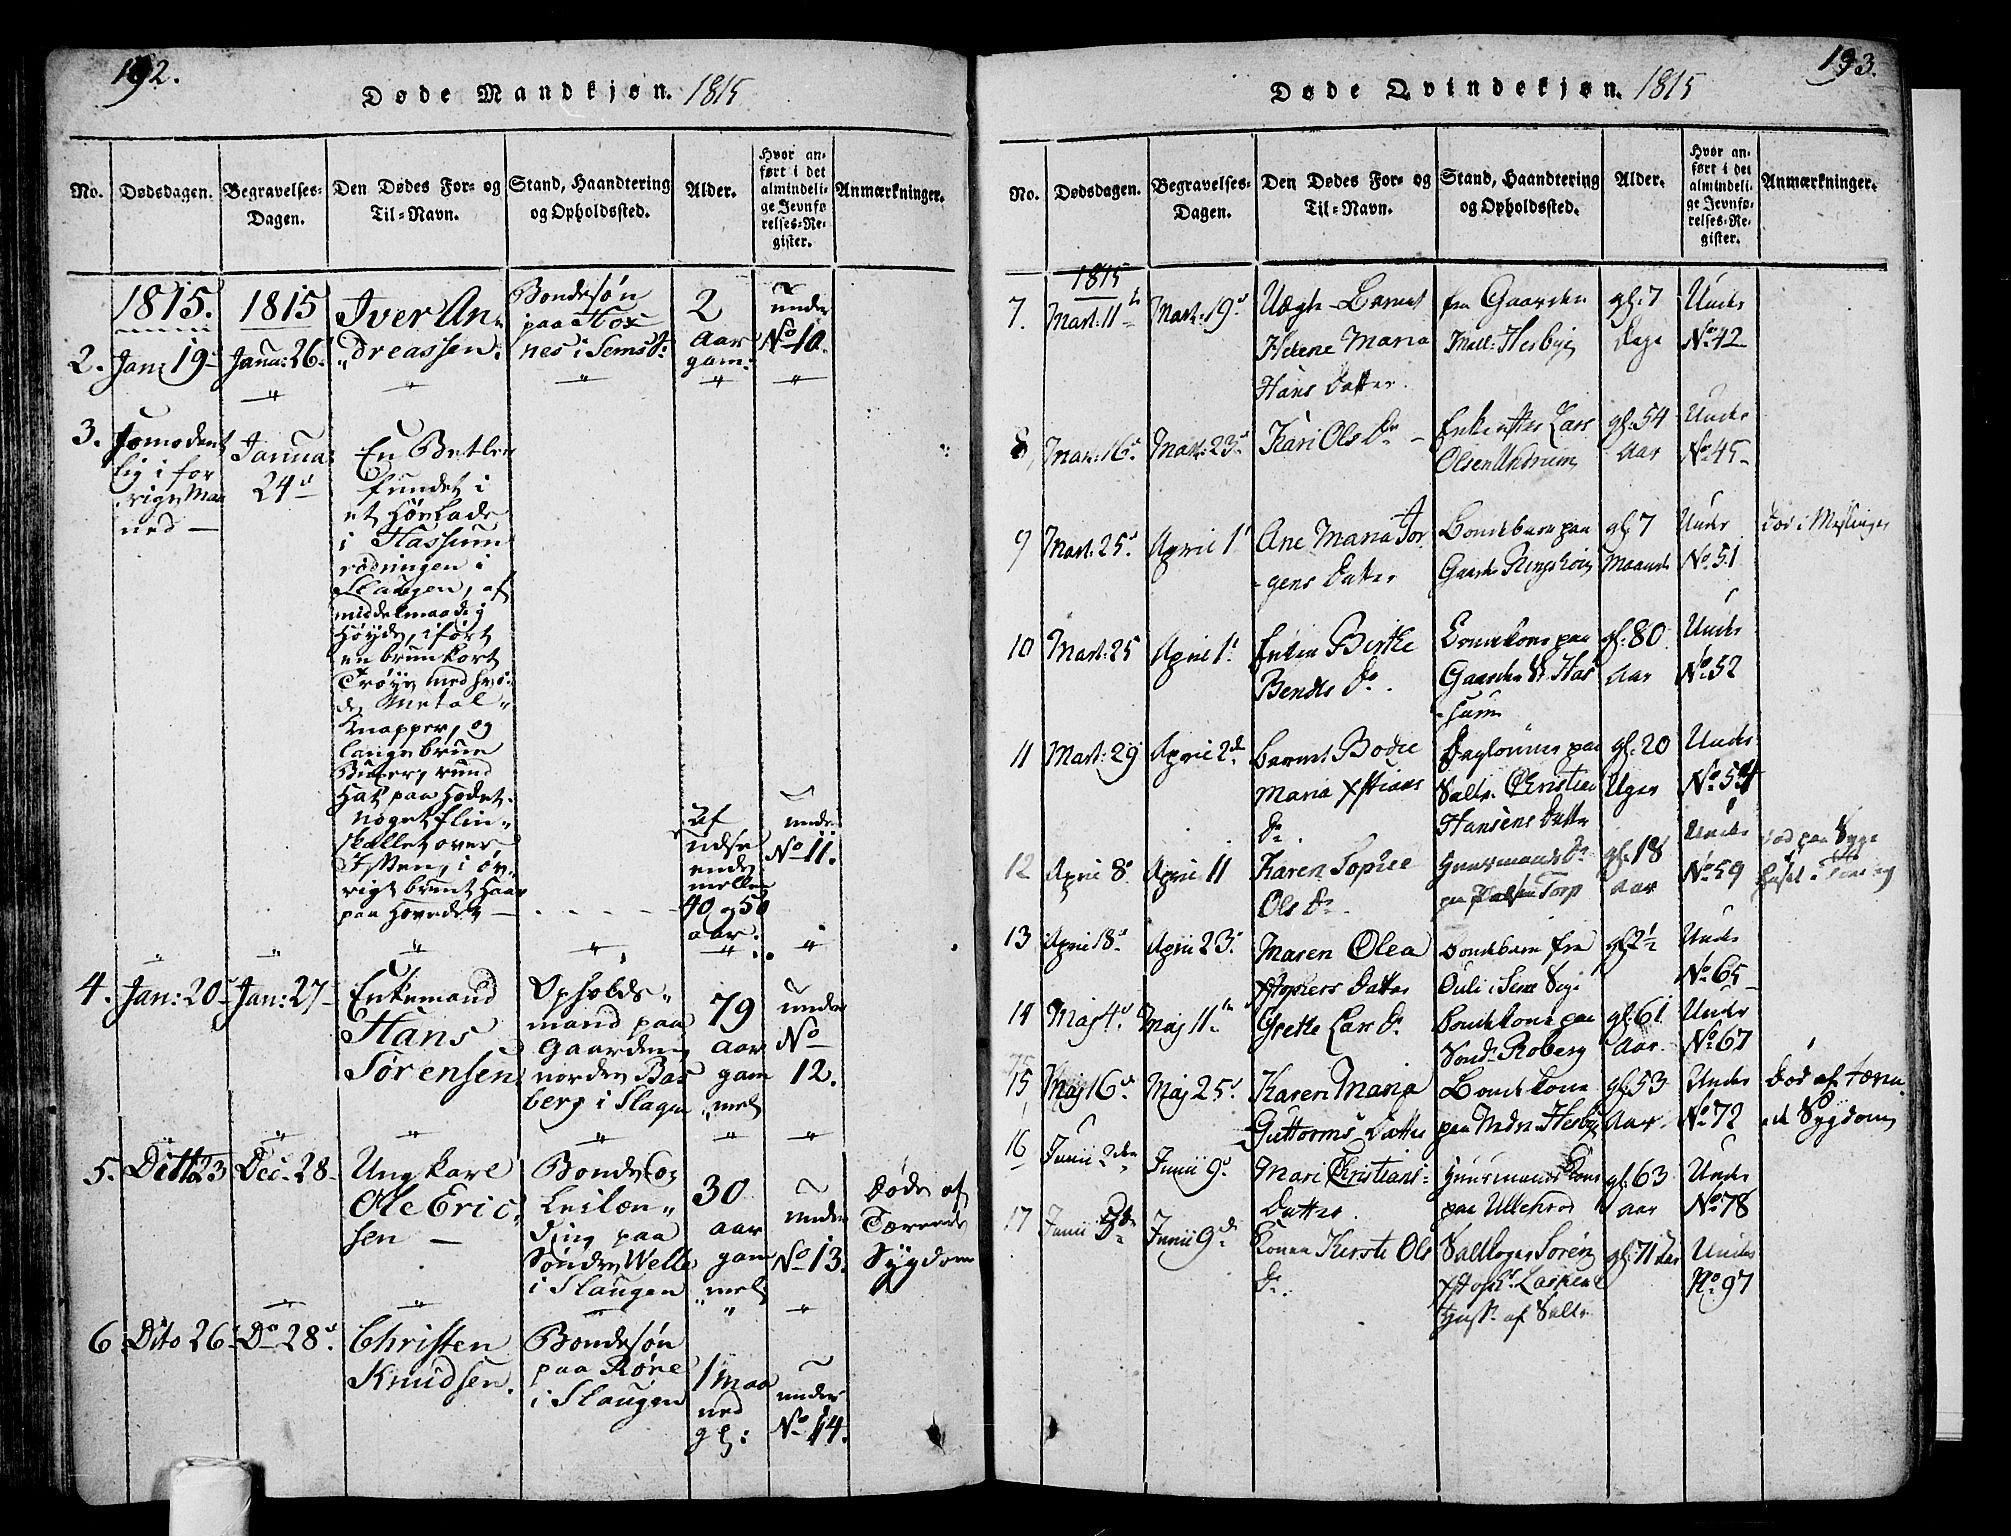 192.
Døde Mandkjøn. 1815
No.
Dødsdagen.
Begravelses-
Dagen.
Den Dødes For- og
Til-Navn.
Stand, Haandtering
og Opholdssted.
Alder.
Hvor an-
ført i det
almindeli-
ge Jevnfø
relses-Re-
gister.
Anmærkninger.
1815. 1815
2. Jan: 19 Janu: 26.
Iver An-
dreassen.
Bondesøn
paa Hox
nes i Sems
2
Aar
gam:
under
No 10.
3.
formodent
lig i for
rige Maa
ned —
Janua:
24
En Betler
fundet i
et Høelade
i Hassum
rødningen i
Slaugen, af
middelmaadig
Høyde, iført
en brun kort
Trøye med hvi
de Metal
Knapper, og
lange brune
Buxer, rund
Hat paa Hodet.
noget flin
skallet over
Issen, i øv
rigt brunt Haar
paa Hovedet —
af
udse
ende
mellem
40 og 50
aar.
under
No 11.
4. Jan: 20 Jan: 27
Enkemand
Hans
Sørensen
Opholds
mand paa
Gaarden
norden Bas
berg i Slagen
79
Aar
gam
mel
under
No
12.
5. Ditto 23 Dec. 28.
Ungkarl
Ole Eric
sen —
Bonde og
Leilæn
ding paa
Søndre Welle
i Slaugen
30
aar
gam
mel
under
No 13.
Døde af
Tærende
Sygdom
6. Dito 26 Do 28.
Christen
Knudsen.
Bondesøn
paa Røre
i Slaugen
1 maa
ned
gl:
under
No 14.
193.
Døde Qvindekjøn. 1815
No.
Dødsdagen.
Begravelses-
Dagen.
Den Dødes For- og
Til-Navn.
Stand, Haandtering
og Opholdssted.
Alder.
Hvor an-
ført i det
almindeli-
ge Jevnfø-
relses-Re-
gister.
Anmærkninger.
1815
7. Mart. 11 Mart. 19
Uægte Barnet
Helene Maria
Hans Datter.
fra Gaarden
Mell: Hesbye
gl: 7
Dage
Under
No 42
8 Mar: 16 Mart: 23
Kari Ols Dr —
Enke efter Lars
Olsen Undrum
gl: 54
Aar
Under
No 45
9 Mart. 25 April 1
Ane Maria Jør
gens Datter
Bondebarn paa
Gaarden Ringshoug
gl: 7
Maaneder
Under
No 51
Død i Meslinger
10 Mart: 25 April 1
Enken Birthe
Bendts Dr.
Bondekone paa
Gaarden Has
sum
gl: 80
Aar
Under
No 52
11 Mart: 29 April 2
Barnet Bodil
Maria Xstians
Dr.
Daglønner paa
Valle Christian
Hansens Datter
gl: 20
Uger
Under
No 54
12 April 8 April 11
Karen Sophie
Ols Dr.
Huusmands Dr
Torp
gl: 18
Aar
Under
No 59
død paa Syge
huset i
13 April 18 April 23
Maren Olea
Xstophers Datter
Bondebarn fra
Ouli i Sem
gl 2½
Under
No 65
14 Maj 4 Maj 11
Grethe Lars Dr
Bondekone paa
Sond. Roberg
gl: 61
Aar
Under
No 67
15 Maj 16 Maj 25
Karen Maria
Guttorms Datter
Bondekone
paa Hesbye
gl: 53
Aar
Under
No 72
Død af Tæren
de Sygdom
16 Junii 2den Junii 9
Mari Christians
Datter.
Huusmands Kone
paa Ullehrod
gl: 63
Aar
Under
No 78
17 Junii Junii 9
Konen Kirste Ols
Dr.
Søren
af Valle
gl: 71 Aar
Under
No 97